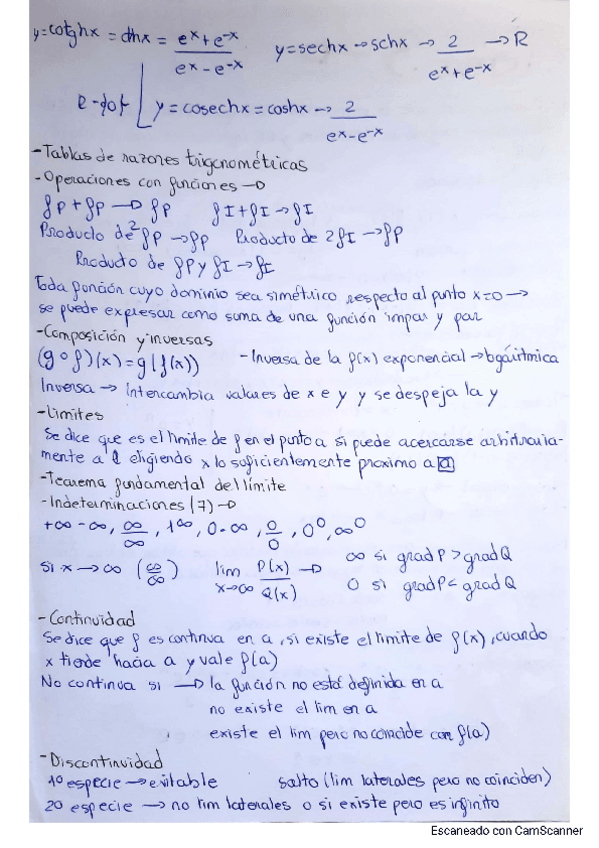 y=cotghx = cthx = e^x+e^-x / e^x-e^-x   y=sechx → schx → 2 / e^x+e^-x → R
R-{0} y=cosechx = coshx → 2 / e^x-e^-x
-Tablas de razones trigonométricas
-Operaciones con funciones →
fP+fP → fP   fI+fI → fI
Producto de 2 fP → fP   Producto de 2 fI → fP
Producto de fP y fI → fI
Toda función cuyo dominio sea simétrico respecto al punto x=0 →
se puede expresar como suma de una función impar y par
-Composición y inversas
(g∘f)(x)=g(f(x))   -Inversa de la f(x) exponencial → logáritmica
Inversa → Intercambia valores de x e y y se despeja la y
-Límites
Se dice que es el límite de f en el punto a si puede acercarse arbitraria-
mente a l eligiendo x lo suficientemente proximo a a
-Teorema fundamental del límite
-Indeterminaciones (7) →
+∞-∞, ∞/∞, 1^∞, 0·∞, 0/0, 0^0, ∞^0
si x → ∞ (∞/∞)   lim x→∞ P(x)/Q(x) →   ∞ si gradP > gradQ
0 si gradP < gradQ
-Continuidad
Se dice que f es continua en a, si existe el límite de f(x), cuando
x tiende hacia a y vale f(a)
No continua si → la función no está definida en a
no existe el lim en a
existe el lim pero no coincide con f(a)
-Discontinuidad
1º especie → evitable   salto (lim laterales pero no coinciden)
2º especie → no lim laterales o si existe pero es infinito
Escaneado con CamScanner